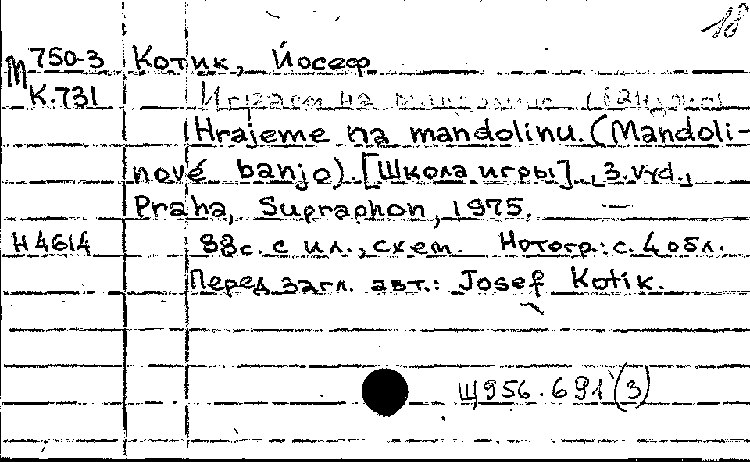 18
М 750-3 Котик, Йосеф
К.731 Играем на
Hrajeme na mandolinu. (Mandoli-
nové banjo). [Школа игры]. 3. vyd.,
Praha, Supraphon, 1975.
Н 4614 88с. с ил., схем. Нотогр.: с. 4 обл.
Перед загл. авт.: Josef Kotik.
Щ956.691(3)